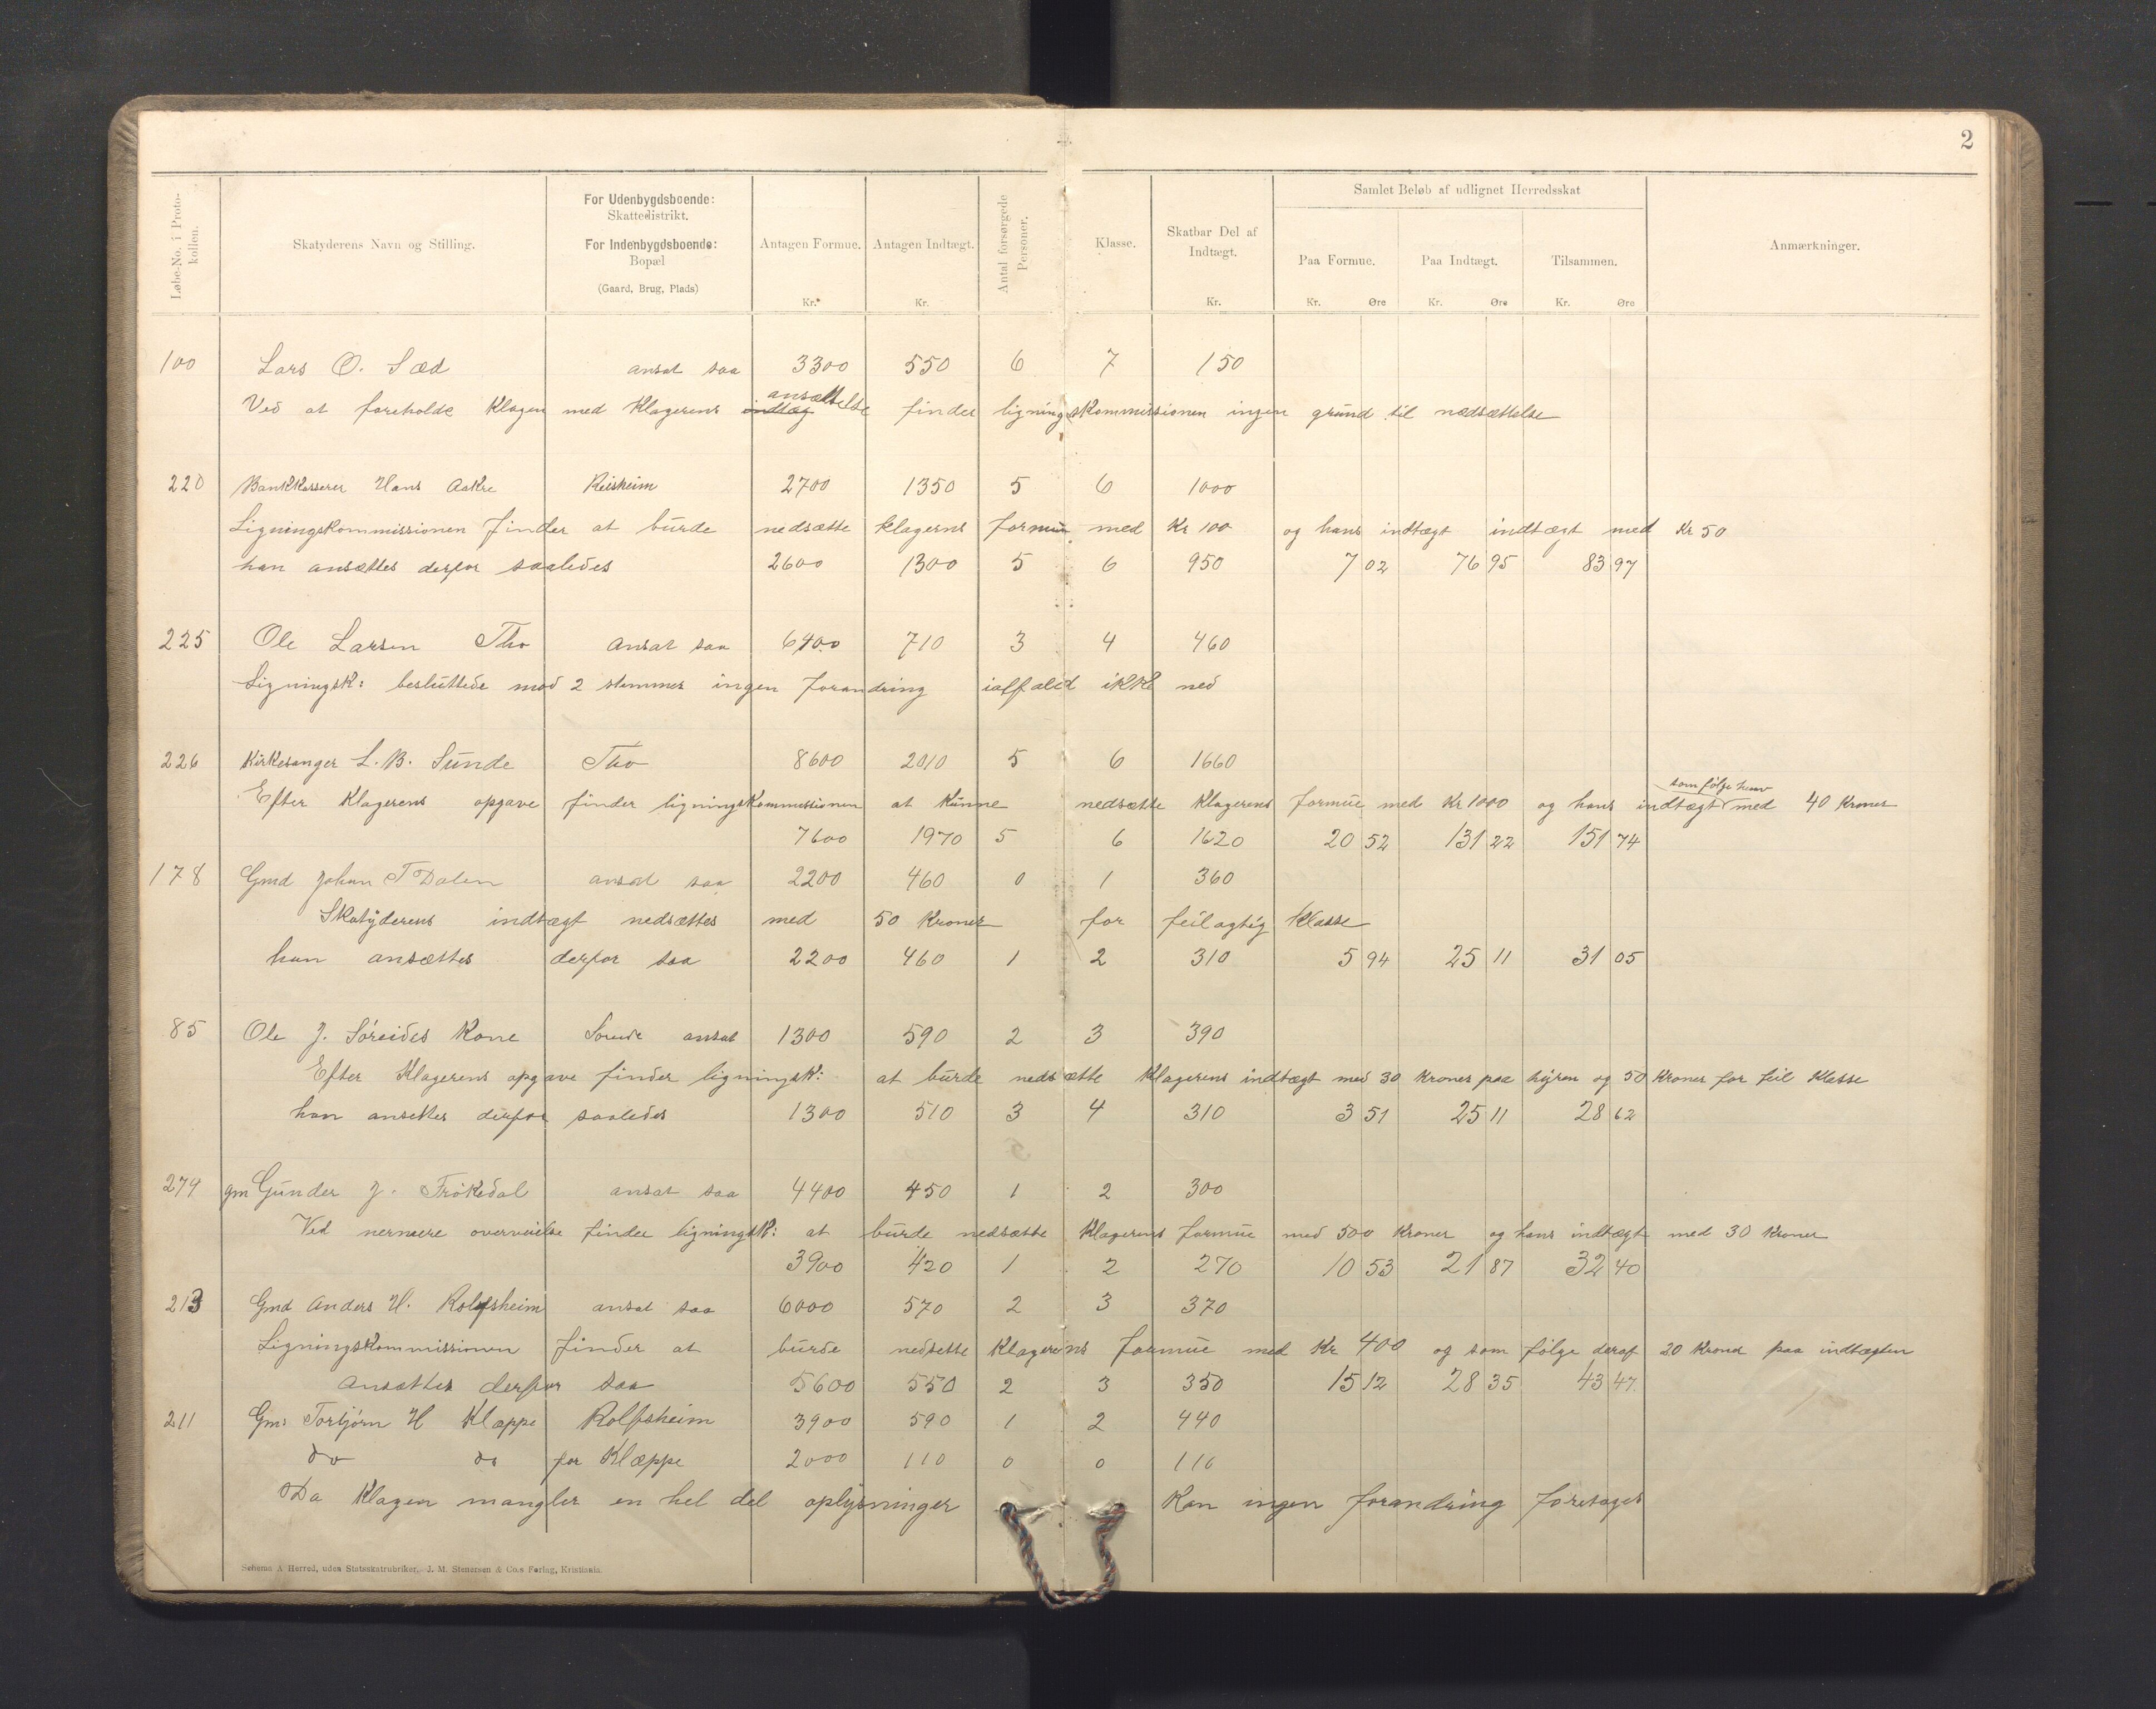 2
Løbe-No. i Protokollen.
Skatyderens Navn og Stilling.
For Udenbygdsboende: Skattedistrikt. For Indenbygdsboende: Bopæl (Gaard, Brug, Plads)
Antagen Formue. Kr.
Antagen Indtægt. Kr.
Antal forsørgede Personer.
Klasse.
Skatbar Del af Indtægt. Kr.
Samlet Beløb af udlignet Herredsskat
Paa Formue. Kr. Øre
Paa Indtægt. Kr. Øre
Tilsammen. Kr. Øre
Anmærkninger.
100 Lars O. Sæd ansat saa 3300 550 6 7 150
Ved at foreholde Klagen med Klagerens ansættelse finder ligningskommissionen ingen grund til nedsættelse
220 Bankkasserer Hans Aakre Reisheim 2700 1350 5 6 1000
Ligningskommissionen finder at burde nedsætte klagerens formue med Kr 100 og hans indtægt indtægt med Kr 50
han ansættes derfor saaledes 2600 1300 5 6 950 7 02 76 95 83 97
225 Ole Larsen Tho ansat saa 6400 710 3 4 460
Ligningsk: besluttede mod 2 stemmer ingen forandring iaffald ikke ned
226 Kirkesanger L. B. Sunde Tho 8600 2010 5 6 1660
Efter Klagerens opgave finder ligningskommissionen at kunne nedsætte Klagerens formue med Kr 1000 og hans indtægt som følge herav med 40 Kroner
7600 1970 5 6 1620 20 52 131 22 151 74
178 Gmd Johan T Dalen ansat saa 2200 460 0 1 360
Skatyderens indtægt nedsættes med 50 Kroner for feilagtig Klasse
han ansættes derfor saa 2200 460 1 2 310 5 94 25 11 31 05
85 Ole J. Søreides Kone ansat 1300 590 2 3 390
Efter Klagerens opgave finder ligningsk: at burde nedsætte Klagerens indtægt med 30 Kroner paa hyren og 50 Kroner for feil Klasse
han ansettes derfor saaledes 1300 510 3 4 310 3 51 25 11 28 62
279 gm Gunder J. Frøkedal ansat saa 4400 450 1 2 300
Ved nermere overveielse finder ligningsk: at burde nedsætte Klagerens formue med 500 Kroner og hans indtægt med 30 Kroner
3900 420 1 2 270 10 53 21 87 32 40
213 Gmd Anders H. Rolfsheim ansat saa 6000 570 2 3 370
Ligningskommissionen finder at burde nedsette Klagerens formue med Kr 400 og som følge deraf 20 Kroner paa indtægten
ansættes derfor saa 5600 550 2 3 350 15 12 28 35 43 47
211 Gm: Torbjørn H Klæppe Rolfsheim 3900 590 1 2 440
do do for Klæppe 2000 110 0 0 110
Da Klagen mangler en hel del oplysninger Kan ingen forandring foretages
Schema A Herred, uden Statsskatrubriker. J. M. Stenersen & Co.s Forlag, Kristiania.